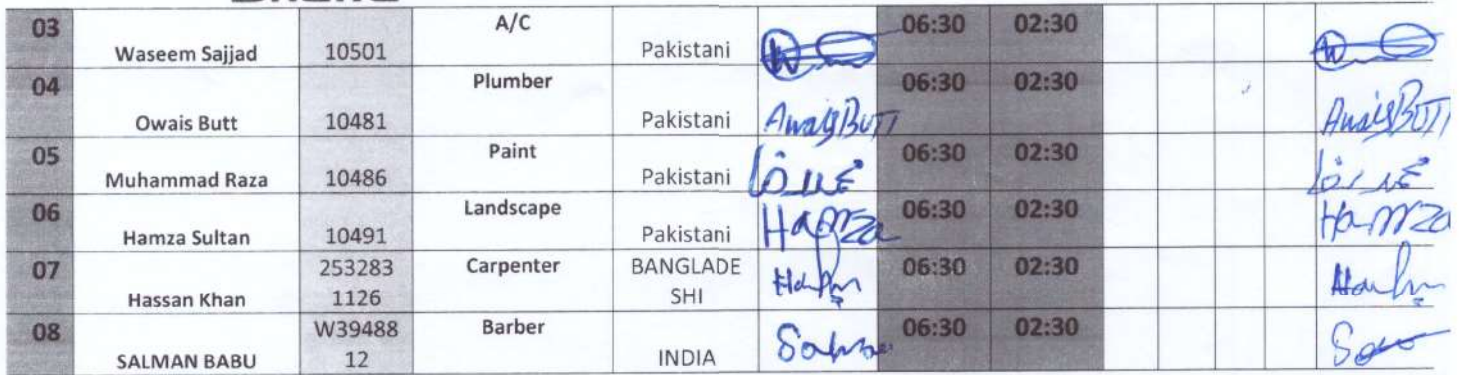 03 Waseem Sajjad 10501 A/C Pakistani 06:30 02:30
04 Owais Butt 10481 Plumber Pakistani AwaisButt 06:30 02:30 AwaisButt
05 Muhammad Raza 10486 Paint Pakistani 06:30 02:30
06 Hamza Sultan 10491 Landscape Pakistani Hamza 06:30 02:30 Hamza
07 Hassan Khan 253283 1126 Carpenter BANGLADE SHI 06:30 02:30
08 SALMAN BABU W39488 12 Barber INDIA 06:30 02:30